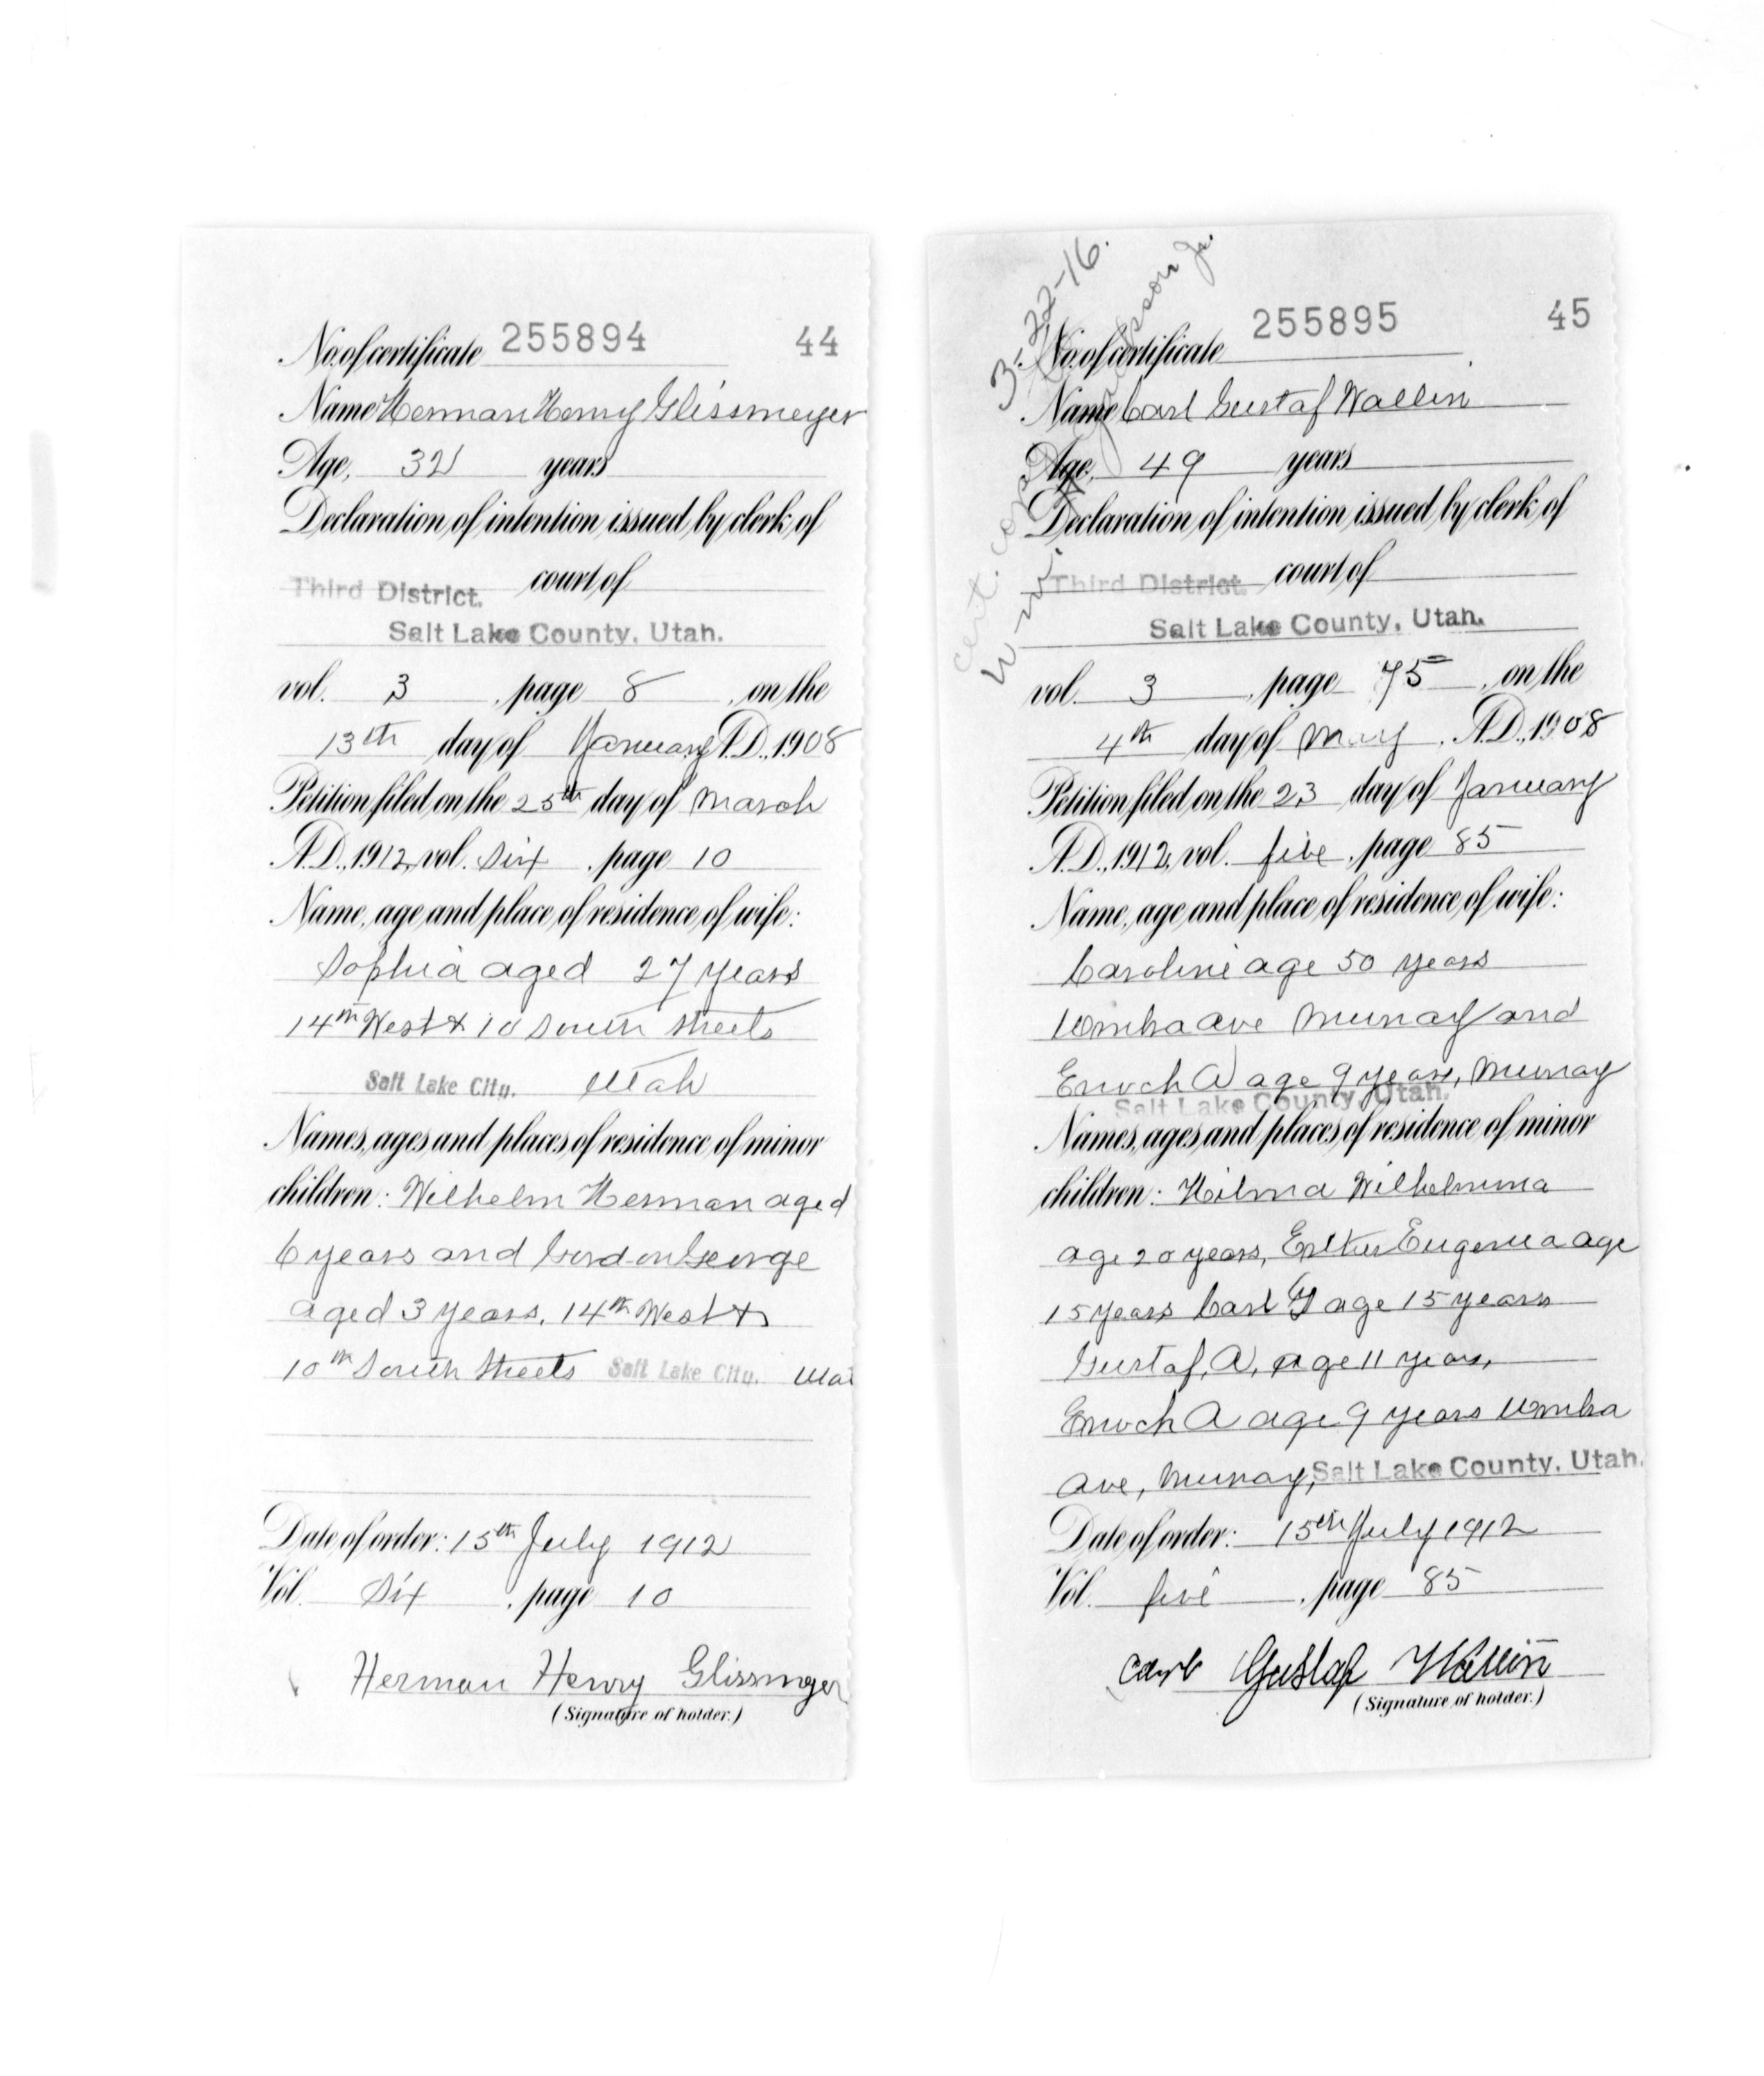 No. of certificate 255894 44
Name Herman Henry Glissmeyer
Age, 32 years
Declaration of intention issued by clerk of
Third District. court of
Salt Lake County, Utah.
vol. 3, page 8, on the
13th day of January A.D., 1908
Petition filed on the 25th day of March
A.D., 1912, vol. Six, page 10
Name, age and place of residence of wife:
Sophia aged 27 years
14th West & 10 South Streets
Salt Lake City. Utah
Names, ages and places of residence of minor
children: Wilhelm Herman aged
6 years and Gordon George
aged 3 years, 14th West &
10th South Streets Salt Lake City.
Date of order: 15th July 1912
Vol. Six, page 10
Herman Henry Glissmeyer
(Signature of holder.)
3-22-16.
cert.
No. of certificate 255895 45
Name Carl Gustaf Wallin
Age, 49 years
Declaration of intention issued by clerk of
Third District. court of
Salt Lake County, Utah.
vol. 3, page 75, on the
4th day of May, A.D., 1908
Petition filed on the 23 day of January
A.D., 1912, vol. five, page 85
Name, age and place of residence of wife:
Caroline age 50 years
Ave Murray and
Enoch A age 9 years, Murray
Salt Lake County, Utah.
Names, ages and places of residence of minor
children: Hilma Wilhelmina
age 20 years, Esther Eugenia age
15 years Carl Y age 15 years
Gustaf, A, age 11 years,
Enoch A age 9 years
Ave, Murray, Salt Lake County, Utah.
Date of order: 15th July 1912
Vol. five, page 85
Carl Gustaf Wallin
(Signature of holder.)